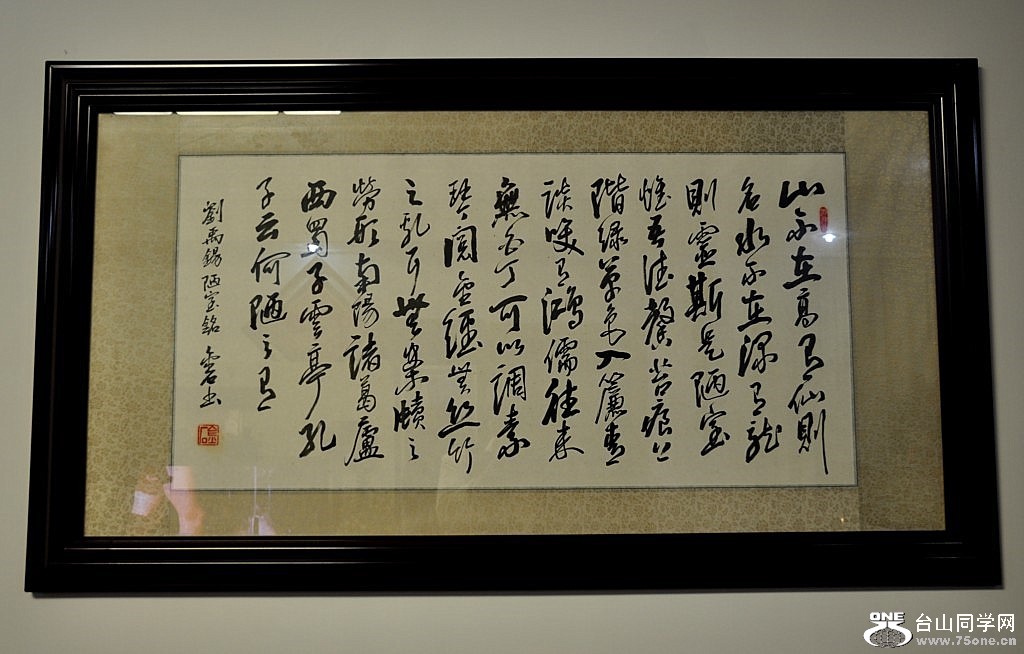 山不在高有仙則
名水不在深有龍
則靈斯是陋室
惟吾德馨苔痕上
階綠草色入簾青
談笑有鴻儒往來
無白丁可以調素
琴閱金經無絲竹
之亂耳無案牘之
勞形南陽諸葛廬
西蜀子雲亭孔
子云何陋之有
劉禹錫陋室銘 书
ONE 台山同学网
www.75one.cn